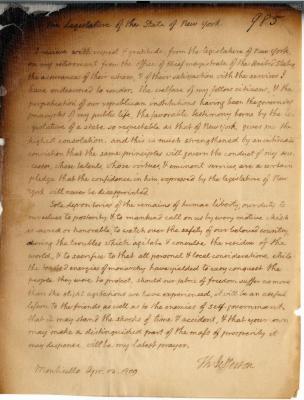 To the Legislature of the State of New York. 985
I receive with respect & gratitude, from the legislature of New York,
on my retirement from the office of chief magistrate of the United States,
the assurances of their esteem, & of their satisfaction with the services I
have endeavored to render. the welfare of my fellow citizens, & the
perpetuation of our republican institutions having been the governing
principles of my public life, the favorable testimony borne by the leg-
islature of a state so respectable as that of New York, gives me the
highest consolation. and this is much strengthened by an intimate
conviction that the same principles will govern the conduct of my suc-
cessor, whose talents, whose virtues & eminent services are a certain
pledge that the confidence in him expressed by the legislature of New
York will never be disappointed.
Sole depositories of the remains of human liberty, our duty to
ourselves, to posterity, & to mankind call on us by every motive which
is sacred or honorable, to watch over the safety of our beloved country
during the troubles which agitate & convulse the residue of the
world, & to sacrifice to that all personal & local considerations. while
the boasted energies of monarchy have yielded to easy conquest the
people they were to protect, should our fabric of freedom suffer no more
than the slight agitations we have experienced, it will be an useful
lesson to the friends as well as to the enemies of self government.
that it may stand the shocks of time & accident, & that your own
may make a distinguished part of the mass of prosperity it
may dispense will be my latest prayer.
Th: Jefferson
Monticello Apr. 12. 1809.